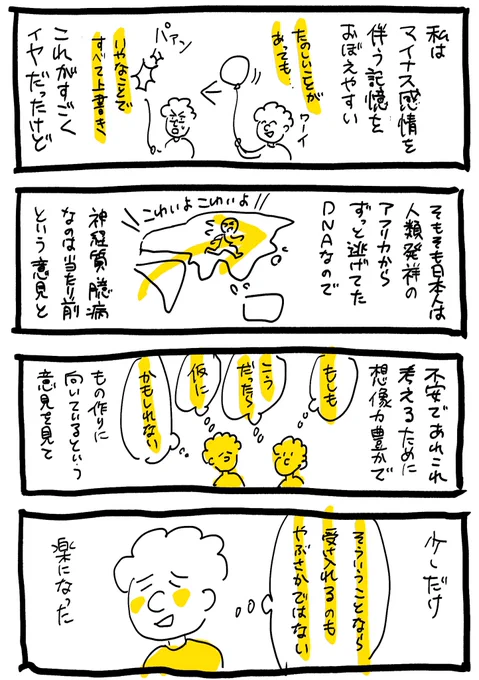 私は
マイナス感情を
伴う記憶を
おぼえやすい
たのしいことが
あっても
ワーイ
パァン
いやなことで
すべて上書き
これがすごく
イヤだったけど
そもそも日本人は
人類発祥の
アフリカから
ずっと逃げてた
DNAなので
こわいよこわいよ!!
神経質、臆病
なのは当たり前
という意見と
不安であれこれ
考えるために
想像力豊かで
もしも
こう
だったら
仮に
かもしれない
もの作りに
向いているという
意見を見て
少しだけ
そういうことなら
受け入れるのも
やぶさかではない
楽になった